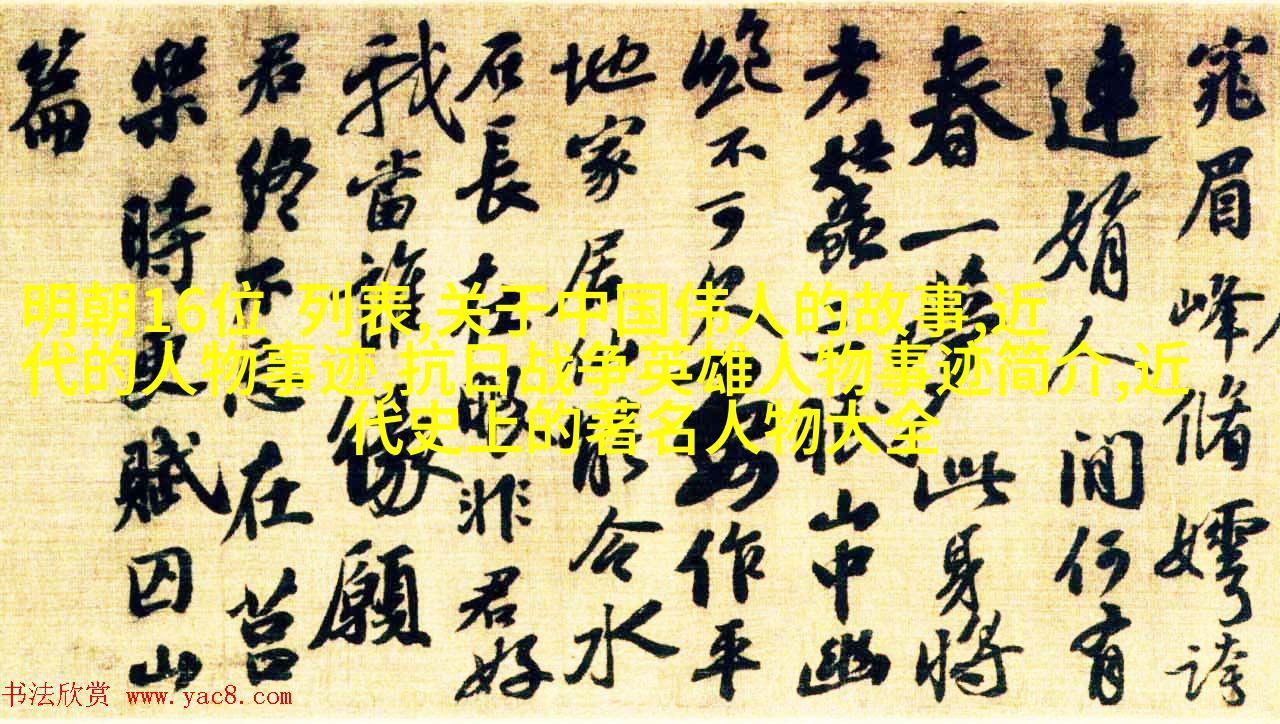 窕眉峰脩嫮誇
連娟人間何有
春一夢此身將
老蠶三眠山中幽
絕不可久要作平
地家居仙能令水
石長在眼非君好
我當誰緣願
君終不忘在莒
樂時更賦囚山
篇
明朝16位 列表,关于中国伟人的故事,近
代的人物事迹,抗日战争英雄人物事迹简介,近
代史上的著名人物大全
书法欣赏 www.yac8.com